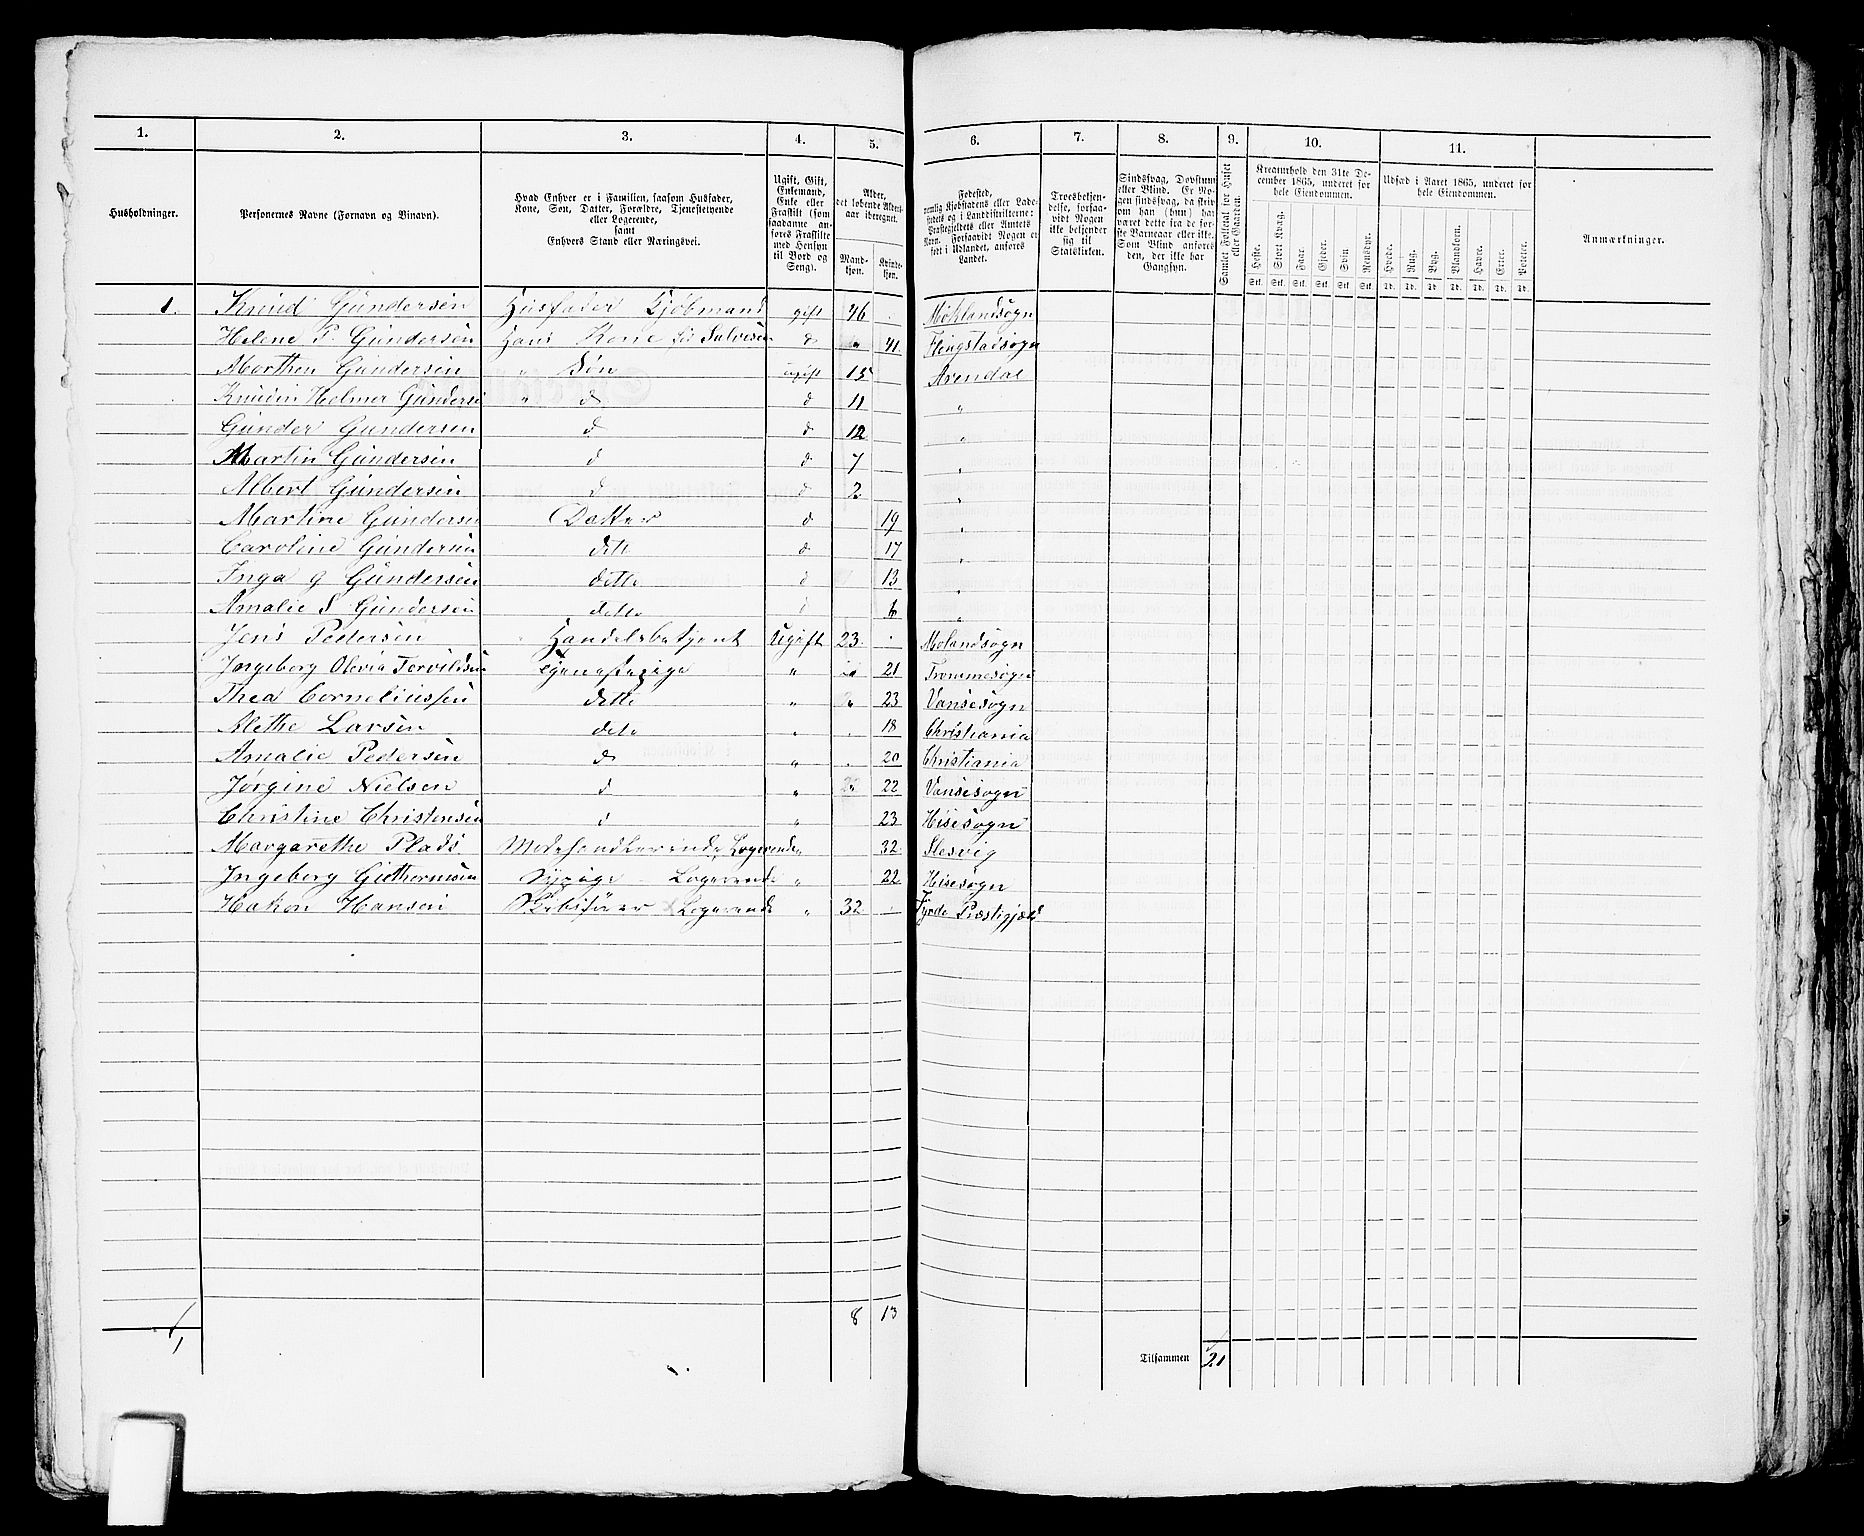 1. 2. 3. 4. 5. 6. 7. 8. 9. 10. 11.
Husholdninger.
Personernes Navne (Fornavn og Binavn).
Hvad Enhver er i Familien, saasom Husfader,
Kone, Søn, Datter, Forældre, Tjenestetyende
eller Logerende,
samt
Enhvers Stand eller Næringsvei.
Ugift, Gift,
Enkemand,
Enke eller
Fraskilt (som
saadanne an-
føres Fraskilte
med Hensyn
til Bord og
Seng).
Alder,
det løbende Alders-
aar iberegnet.
Mand-
kjøn.
Kvinde-
kjøn.
Fødested,
nemlig Kjøbstadens eller Lade-
stedets og i Landdistrikterne:
Præstegjeldets eller Amtets
Navn. Forsaavidt Nogen er
født i Udlandet, anføres
Landet.
Troesbekjen-
delse, forsaa-
vidt Nogen
ikke bekjender
sig til
Statskirken.
Sindssvag, Døvstum
eller Blind. Er No-
gen sindssvag, da skriv
om han (hun) har
været dette fra de før-
ste Barneaar eller ikke.
Som Blind anføres
den, der ikke har
Gangsyn.
Samlet Folketal for Huset
eller Gaarden.
Kreaturhold den 31te De-
cember 1865, anføres for
hele Eiendommen.
Heste. Stort Kvæg. Faar. Gjeder. Svin Rensdyr.
Stk. Stk. Stk. Stk. Stk. Stk.
Udsæd i Aaret 1865, anføres for
hele Eiendommen.
Hvede. Rug. Byg. Blandkorn. Havre. Erter. Poteter.
Td. Td. Td. Td. Td. Td. Td.
Anmærkninger.
1. Knud Gundersen Husfader Kjøbmand gift 46 Moklandsogn
Helene P. Gundersen Hans Kone d " 41. Salvesen
Morthen Gundersen " Søn ugift 15 Arendal
Knudin Helmer Gunderse " d d 11 "
Gunder Gundersen d d 12 "
Martin Gundersen d d 7 "
Albert Gundersen d d 2 "
Martine Gunderse Datter d 19 "
Caroline Gundersen dette d 17 "
Inga g Gundersen dette d 13 "
Amalie S Gundersen dette d 6 "
Jens Pedersen " Handelsbetjent Ugift 23. Molandsogn
Ingeborg Olevia Torvildsen Tjenestepige " 21 Trommesogn
Thea Corneliussen dette " 23 Vansesogn
Methe Larsen dete " 18 Christiania
Amalie Pedersen d " 20 Christiania
Jørgine Nielsen d " 22 Vansesogn
Christine Christensen d " 23 Hisesogn
Margarethe Plads Modehandlerende Logerende " 32. Slesvig
Ingeborg Guthormsen Sypige Logerende " 22 Hisesogn
Hakon Hansen Skibsfører Logerende " 32 Præstigjæld
1 8 13
Tilsammen 21